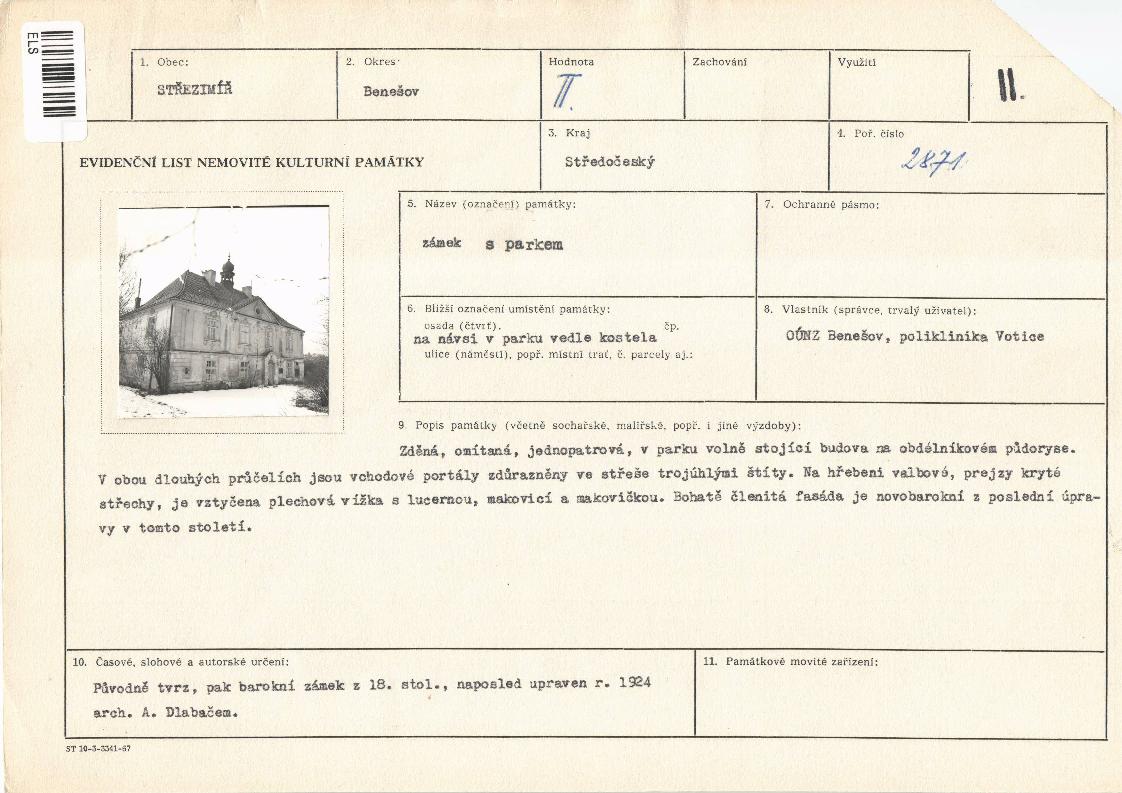 ELS
1. Obec:
STŘEZIMÍŘ
2. Okres
Benešov
Hodnota
II.
Zachování
Využití
II.
EVIDENČNÍ LIST NEMOVITÉ KULTURNÍ PAMÁTKY
3. Kraj
Středočeský
4. Poř. číslo
2871
5. Název (označení) památky:
zámek s parkem
7. Ochranné pásmo:
6. Bližší označení umístění památky:
osada (čtvrť). čp.
na návsi v parku vedle kostela
ulice (náměstí), popř. místní trať, č. parcely aj.:
8. Vlastník (správce, trvalý uživatel):
OÚNZ Benešov, poliklinika Votice
9. Popis památky (včetně sochařské, malířské, popř. i jiné výzdoby):
Zděná, omítaná, jednopatrová, v parku volně stojící budova na obdélníkovém půdoryse.
V obou dlouhých průčelích jsou vchodové portály zdůrazněny ve střeše trojúhlými štíty. Na hřebeni valbové, prejzy kryté
střechy, je vztyčena plechová vížka s lucernou, makovicí a makovičkou. Bohatě členitá fasáda je novobarokní z poslední úpra-
vy v tomto století.
10. Časové, slohové a autorské určení:
Původně tvrz, pak barokní zámek z 18. stol., naposled upraven r. 1924
arch. A. Dlabačem.
11. Památkové movité zařízení:
ST 10-3-3341-67